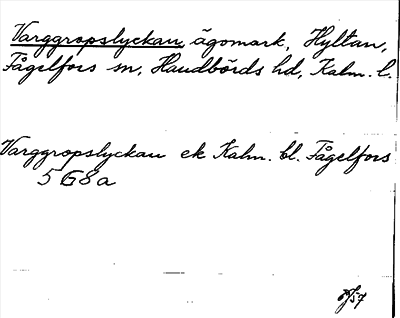 Varggropslyckan, ägomark, Hyltan,
Fågelfors sn, Handbörds hd, Kalm. l.
Varggropslyckan ek Kalm. bl. Fågelfors
5 G 8 a